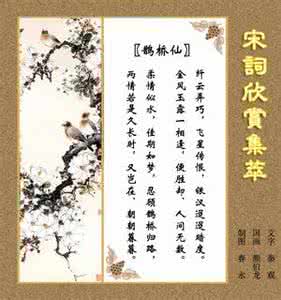 宋詞欣賞集萃
文字 秦观
国画
制图 春永
〖鹊桥仙〗
纤云弄巧，飞星传恨，银汉迢迢暗度。
金风玉露一相逢，便胜却、人间无数。
柔情似水，佳期如梦。忍顾鹊桥归路，
两情若是久长时，又岂在、朝朝暮暮。